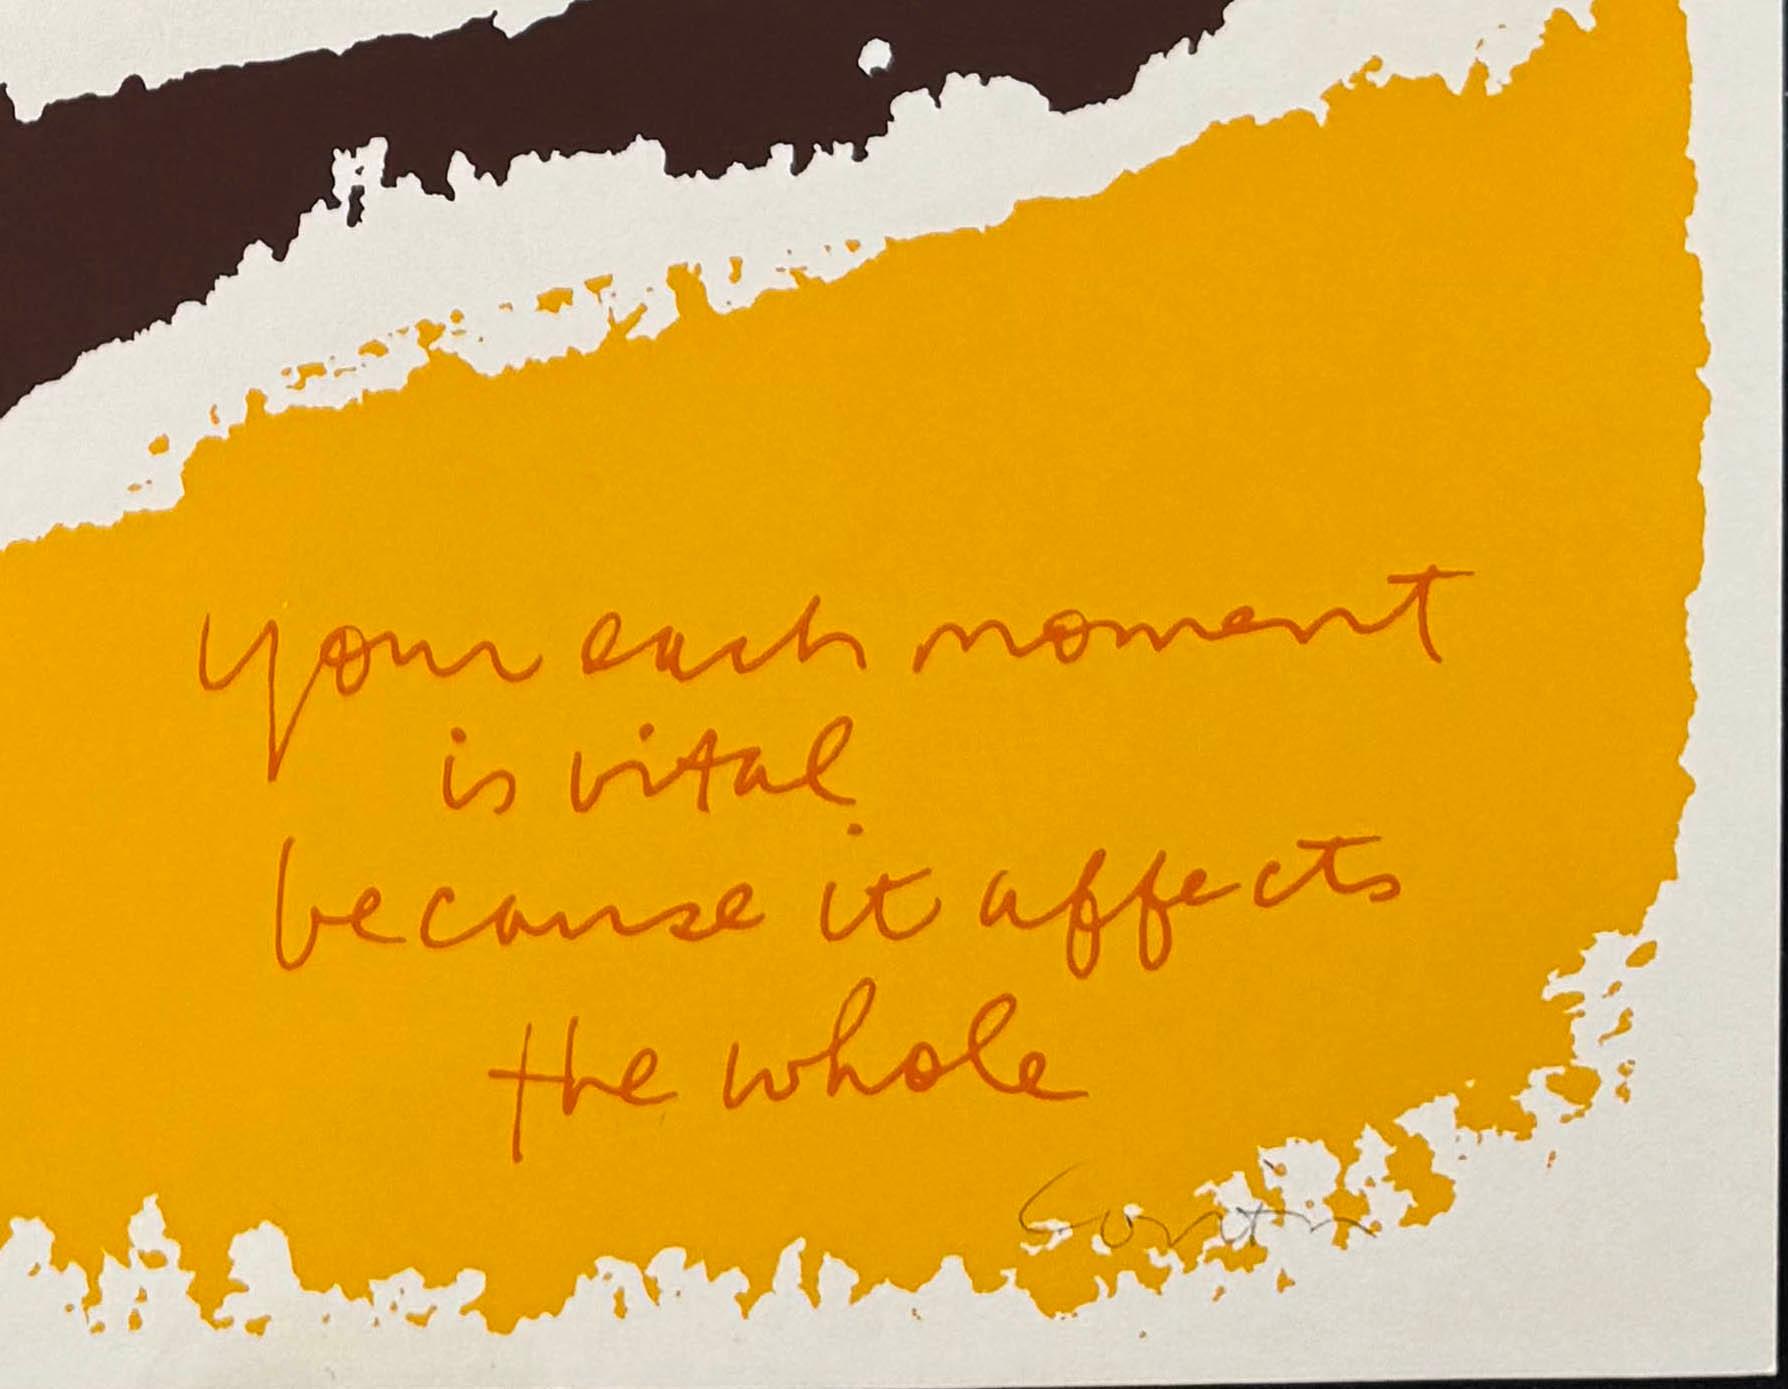 your each moment
is vital
because it affects
the whole